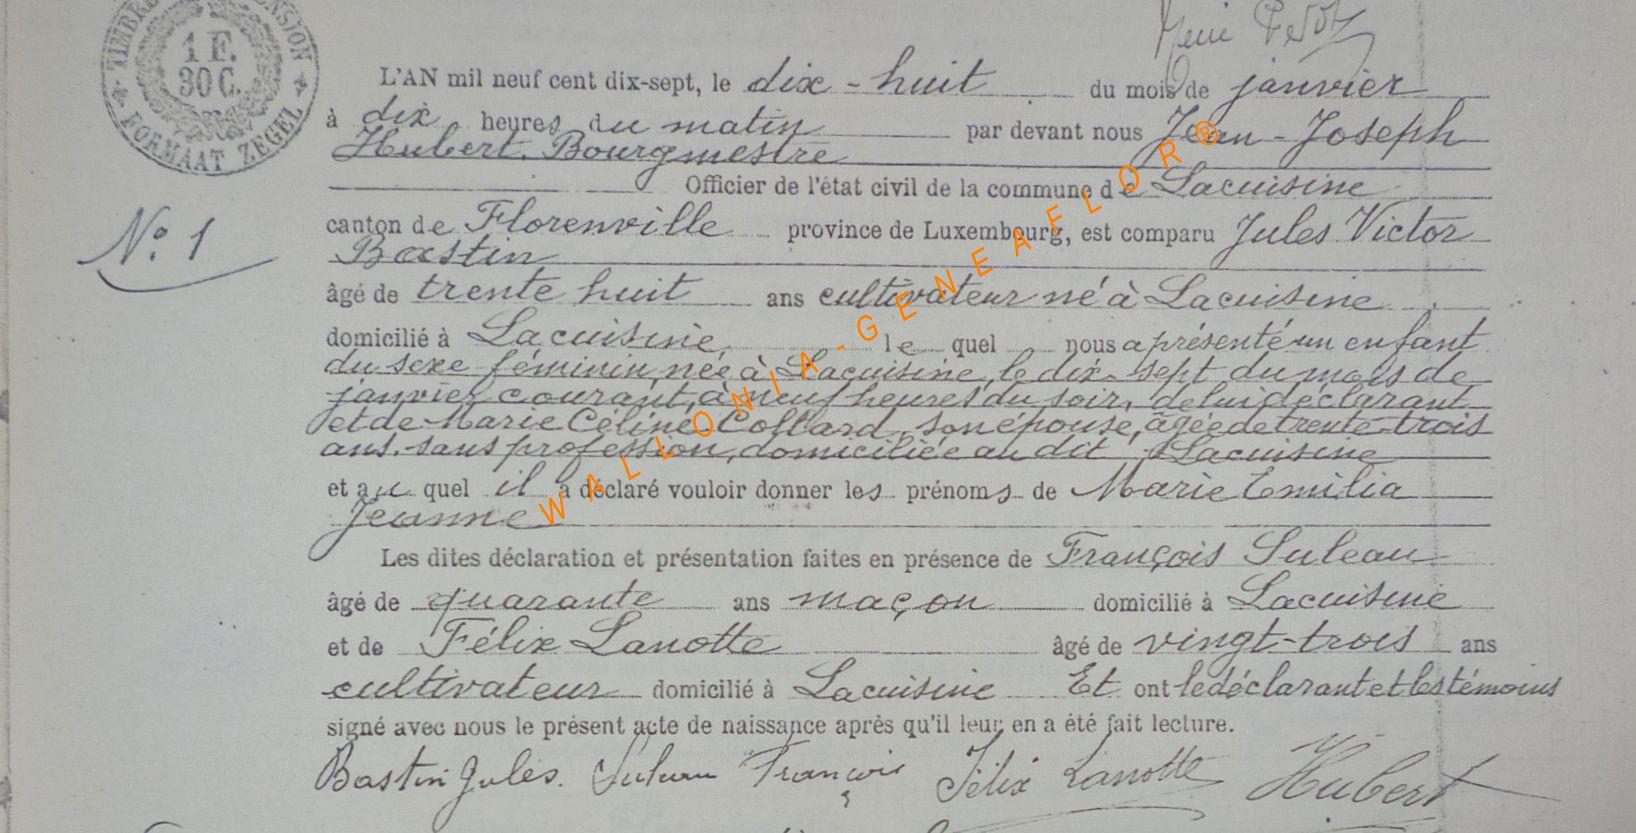 TIMBRE DIMENSION
1 F.
30 C.
FORMAAT ZEGEL
L'AN mil neuf cent dix-sept, le dix-huit du mois de janvier
à dix heures du matin par devant nous Jean-Joseph
Hubert, Bourgmestre
Officier de l'état civil de la commune de Lacuisine
N° 1
canton de Florenville province de Luxembourg, est comparu Jules Victor
Bastin
âgé de trente huit ans cultivateur né à Lacuisine
domicilié à Lacuisine, le quel nous a présenté un enfant
du sexe féminin, née à Lacuisine, le dix-sept du mois de
janvier courant, à neuf heures du soir, de lui déclarant
et de Marie Céline Collard, son épouse, âgée de trente-trois
ans, sans profession, domiciliée au dit Lacuisine
et au quel il a déclaré vouloir donner les prénoms de Marie Emilia
Jeanne
Les dites déclaration et présentation faites en présence de François Suleau
âgé de quarante ans maçon domicilié à Lacuisine
et de Félix Lanotte âgé de vingt-trois ans
cultivateur domicilié à Lacuisine Et ont le déclarant et les témoins
signé avec nous le présent acte de naissance après qu'il leur en a été fait lecture.
Bastin Jules. Suleau François Félix Lanotte Hubert
WALLONIA-GENEAFLOR®